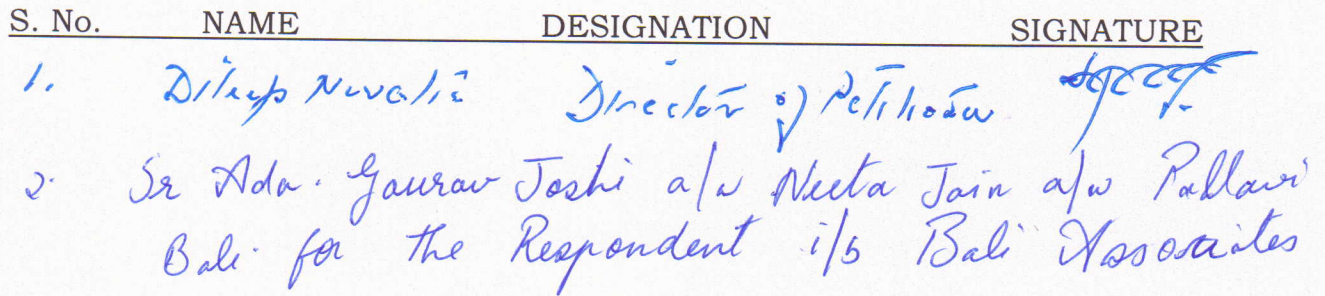 S. No. NAME DESIGNATION SIGNATURE
1. Dileep Nevatia Director of Petitioner
2. Sr Adv. Gaurav Joshi a/w Neeta Jain a/w Pallavi
Bali for the Respondent i/b Bali Associates